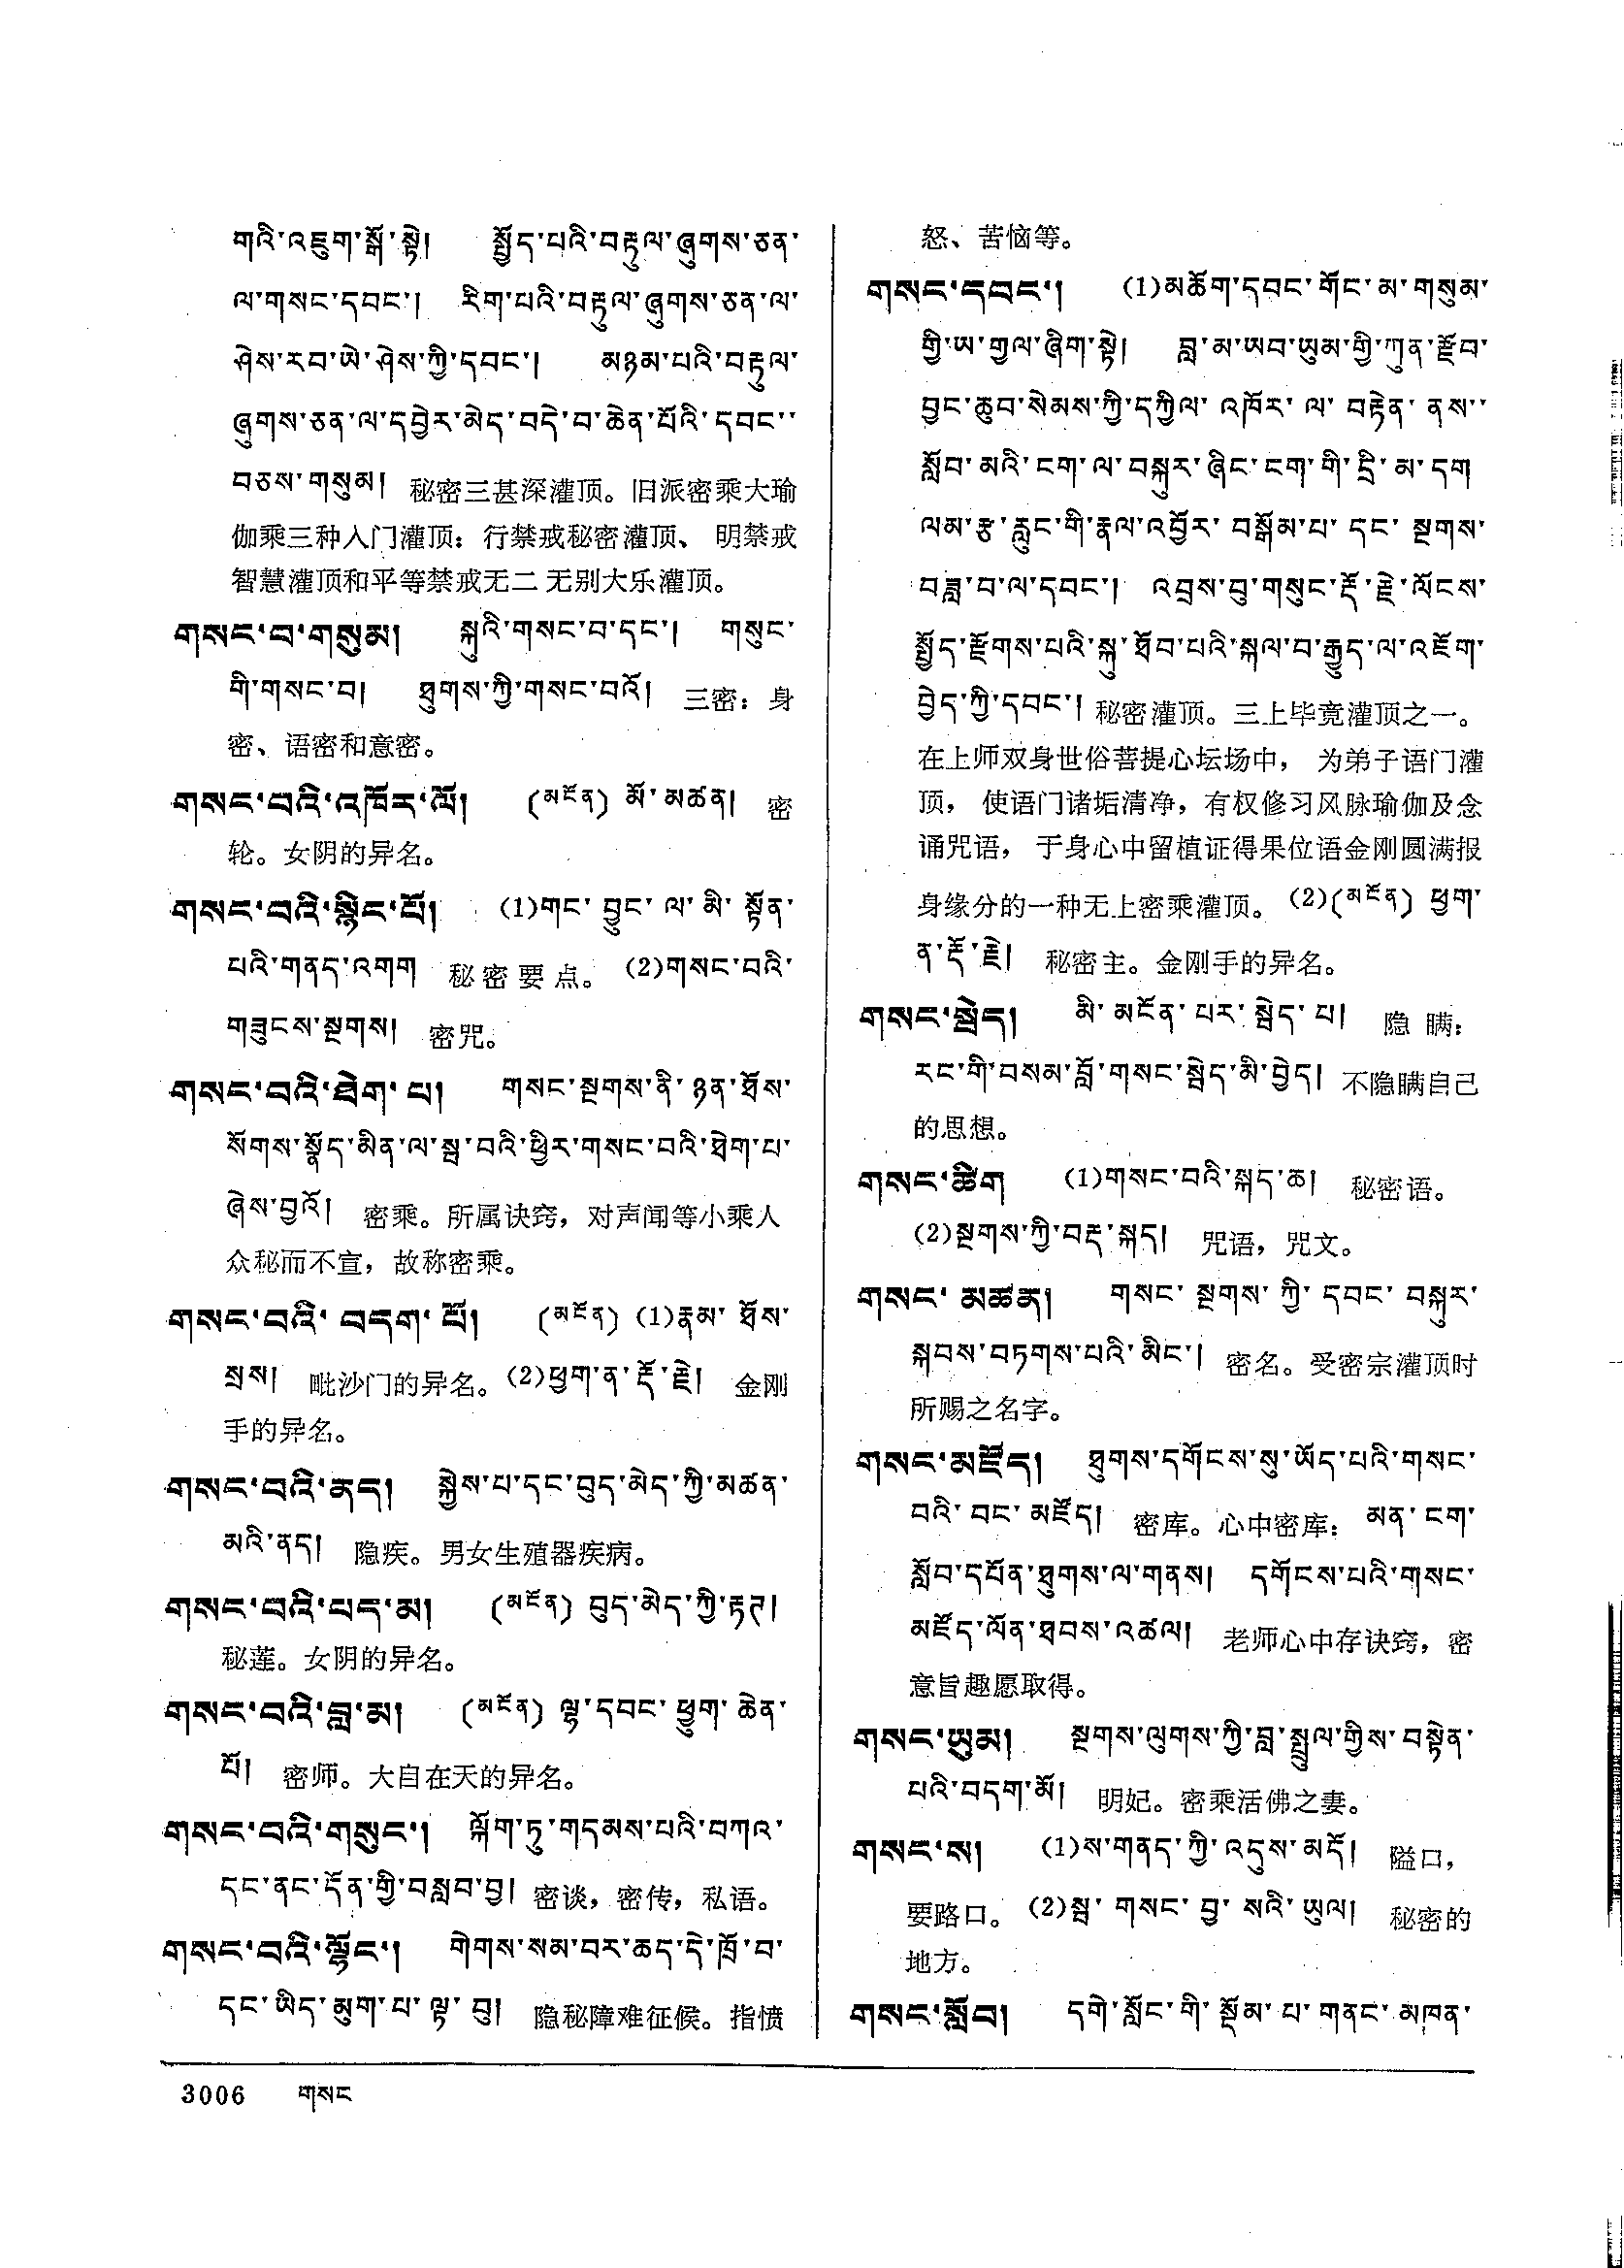 གའི་འཇུག་སྒོ་སྟེ། སྤྱོད་པའི་བརྟུལ་ཞུགས་ཅན་
ལ་གསང་དབང་། རིག་པའི་བརྟུལ་ཞུགས་ཅན་ལ་
ཤེས་རབ་ཡེ་ཤེས་ཀྱི་དབང་། མཉམ་པའི་བརྟུལ་
ཞུགས་ཅན་ལ་དབྱེར་མེད་བདེ་བ་ཆེན་པོའི་དབང་་
བཅས་གསུམ། 秘密三甚深灌顶。旧派密乘大瑜
伽乘三种入门灌顶：行禁戒秘密灌顶、明禁戒
智慧灌顶和平等禁戒无二无别大乐灌顶。
གསང་བ་གསུམ། སྐུའི་གསང་བ་དང་། གསུང་
གི་གསང་བ། ཐུགས་ཀྱི་གསང་བའོ། 三密：身
密、语密和意密。
གསང་བའི་འཁོར་ལོ། (མངོན) མོ་མཚན། 密
轮。女阴的异名。
གསང་བའི་སྙིང་པོ། (1)གང་བྱུང་ལ་མི་སྟོན་
པའི་གནད་འགག 秘密要点。(2)གསང་བའི་
གཟུངས་སྔགས། 密咒。
གསང་བའི་ཐེག་པ། གསང་སྔགས་ནི་ཉན་ཐོས་
སོགས་སྣོད་མིན་ལ་སྦ་བའི་ཕྱིར་གསང་བའི་ཐེག་པ་
ཞེས་བྱའོ། 密乘。所属诀窍，对声闻等小乘人
众秘而不宣，故称密乘。
གསང་བའི་བདག་པོ། (མངོན) (1)རྣམ་ཐོས་
སྲས། 毗沙门的异名。(2)ཕྱག་ན་རྡོ་རྗེ། 金刚
手的异名。
གསང་བའི་ནད། སྐྱེས་པ་དང་བུད་མེད་ཀྱི་མཚན་
མའི་ནད། 隐疾。男女生殖器疾病。
གསང་བའི་པད་མ། (མངོན) བུད་མེད་ཀྱི་རྟཊ།
秘莲。女阴的异名。
གསང་བའི་བླ་མ། (མངོན) ལྷ་དབང་ཕྱུག་ཆེན་
པོ། 密师。大自在天的异名。
གསང་བའི་གསུང་། ལྐོག་ཏུ་གདམས་པའི་བཀའ་
དང་ནང་དོན་གྱི་བསླབ་བྱ། 密谈，密传，私语。
གསང་བའི་ལྷོང་། གེགས་སམ་བར་ཆད་དེ་ཁྲོ་བ་
དང་ཡིད་མུག་པ་ལྟ་བུ། 隐秘障难征候。指愤
怒、苦恼等。
གསང་དབང་། (1)མཆོག་དབང་གོང་མ་གསུམ་
གྱི་ཡ་གྱལ་ཞིག་སྟེ། བླ་མ་ཡབ་ཡུམ་གྱི་ཀུན་རྫོབ་
བྱང་ཆུབ་སེམས་ཀྱི་དཀྱིལ་འཁོར་ལ་བརྟེན་ནས་་
སློབ་མའི་ངག་ལ་བསྐུར་ཞིང་ངག་གི་དྲི་མ་དག
ལམ་རྩ་རླུང་གི་རྣལ་འབྱོར་བསྒོམ་པ་དང་སྔགས་
བཟླ་བ་ལ་དབང་། འབྲས་བུ་གསུང་རྡོ་རྗེ་ལོངས་
སྤྱོད་རྫོགས་པའི་སྐུ་ཐོབ་པའི་སྐལ་བ་རྒྱུད་ལ་འཇོག་
བྱེད་ཀྱི་དབང་། 秘密灌顶。三上毕竟灌顶之一。
在上师双身世俗菩提心坛场中，为弟子语门灌
顶，使语门诸垢清净，有权修习风脉瑜伽及念
诵咒语，于身心中留植证得果位语金刚圆满报
身缘分的一种无上密乘灌顶。(2)(མངོན) ཕྱག་
ན་རྡོ་རྗེ། 秘密主。金刚手的异名。
གསང་སྦྲེད། མི་མངོན་པར་སྦེད་པ། 隐瞒：
རང་གི་བསམ་བློ་གསང་སྦེད་མི་བྱེད། 不隐瞒自己
的思想。
གསང་ཚིག (1)གསང་བའི་སྐད་ཆ། 秘密语。
(2)སྔགས་ཀྱི་བརྡ་སྐད། 咒语，咒文。
གསང་མཚན། གསང་སྔགས་ཀྱི་དབང་བསྐུར་
སྐབས་བཏགས་པའི་མིང་། 密名。受密宗灌顶时
所赐之名字。
གསང་མཛོད། ཐུགས་དགོངས་སུ་ཡོད་པའི་གསང་
བའི་བང་མཛོད། 密库。心中密库：མན་ངག་
སློབ་དཔོན་ཐུགས་ལ་གནས། དགོངས་པའི་གསང་
མཛོད་ལོན་ཐབས་འཚལ། 老师心中存诀窍，密
意旨趣愿取得。
གསང་ཡུམ། སྔགས་ལུགས་ཀྱི་བླ་སྤྲུལ་གྱིས་བསྟེན་
པའི་བདག་མོ། 明妃。密乘活佛之妻。
གསང་ས། (1)ས་གནད་ཀྱི་འདུས་མདོ། 隘口，
要路口。(2)སྦ་གསང་བྱ་སའི་ཡུལ། 秘密的
地方。
གསང་སློབ། དགེ་སློང་གི་སྡོམ་པ་གནང་མཁན་
3006 གསང